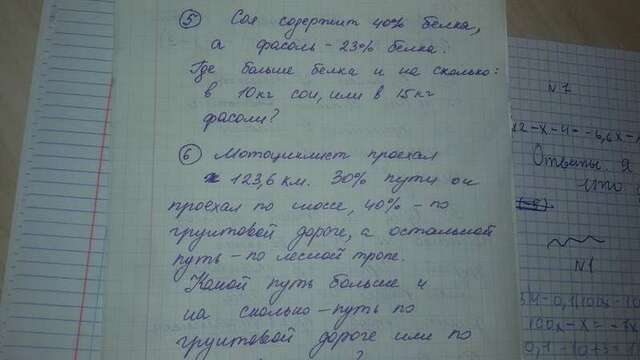 ⑤ Соя содержит 40% белка,
а фасоль - 23% белка.
Где больше белка и на сколько:
в 10 кг сои, или в 15 кг
фасоли?
⑥ Мотоциклист проехал
123,6 км. 30% пути он
проехал по шоссе, 40% - по
грунтовой дороге, а остальной
путь - по лесной тропе.
Какой путь больше и
на сколько - путь по
грунтовой дороге или по
N 7
Ответы
N 1